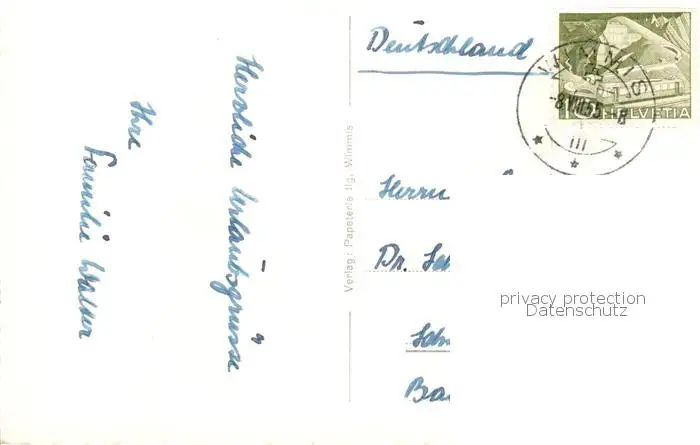 Herzliche Urlaubsgrüsse
Ihre
Familie
Verlag: Papeterie Ilg, Wimmis
Deutschland
WIMMIS
-8.VIII.55
HELVETIA
Herrn
Dr.
privacy protection
Datenschutz